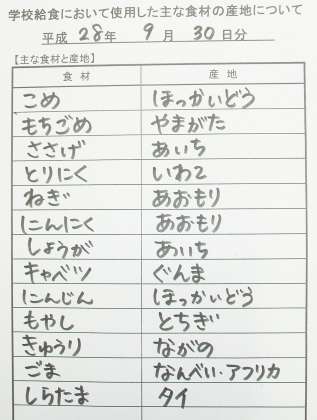 学校給食において使用した主な食材の産地について
平成 28年 9月 30日分
【主な食材と産地】
食材 産地
こめ ほっかいどう
もちごめ やまがた
ささげ あいち
とりにく いわて
ねぎ あおもり
にんにく あおもり
しょうが あいち
キャベツ ぐんま
にんじん ほっかいどう
もやし とちぎ
きゅうり ながの
ごま なんべい・アフリカ
しらたま タイ